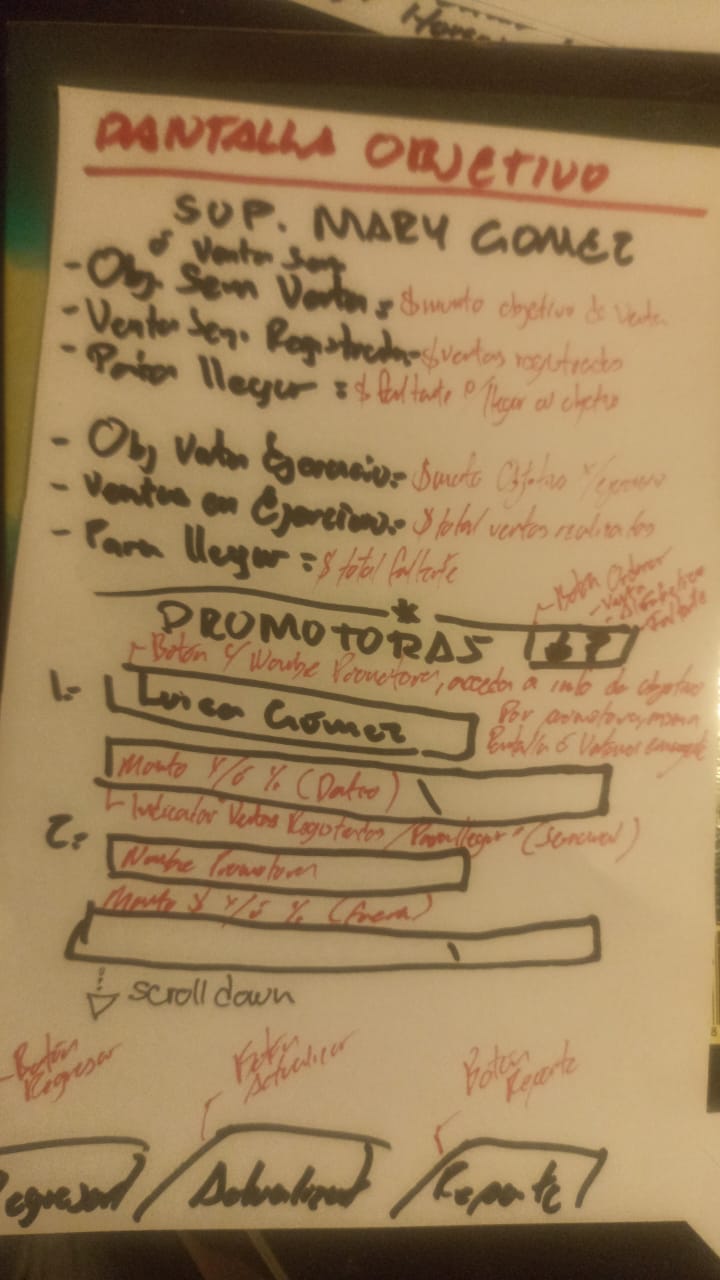 PANTALLA OBJETIVO
SUP. MARY GOMEZ
ó Ventas Sem
- Obj. Sem Ventas = $ monto objetivo de Venta
- Ventas Sem. Registradas = $ ventas registradas
- Para llegar = $ faltante p/ llegar al objetivo
- Obj Venta Ejercicio = $ monto Objetivo x/ejercicio
- Ventas en Ejercicio = $ total ventas realizadas
- Para llegar = $ total faltante
Botón Ordenar
- Venta
faltante
PROMOTORAS
Botón c/ Nombre Promotora, acceder a info de objetivo
Por promotora, misma
Pantalla ó Ventana emergente
1.- Luisa Gómez
Monto y/ó % (Dentro)
Indicador Ventas Registradas / "Para llegar" (Semanal)
2.- Nombre Promotora
Monto $ y/ó % (fuera)
scroll down
Botón Regresar
Botón Actualizar
Botón Reporte
Regresar
Actualizar
Reporte